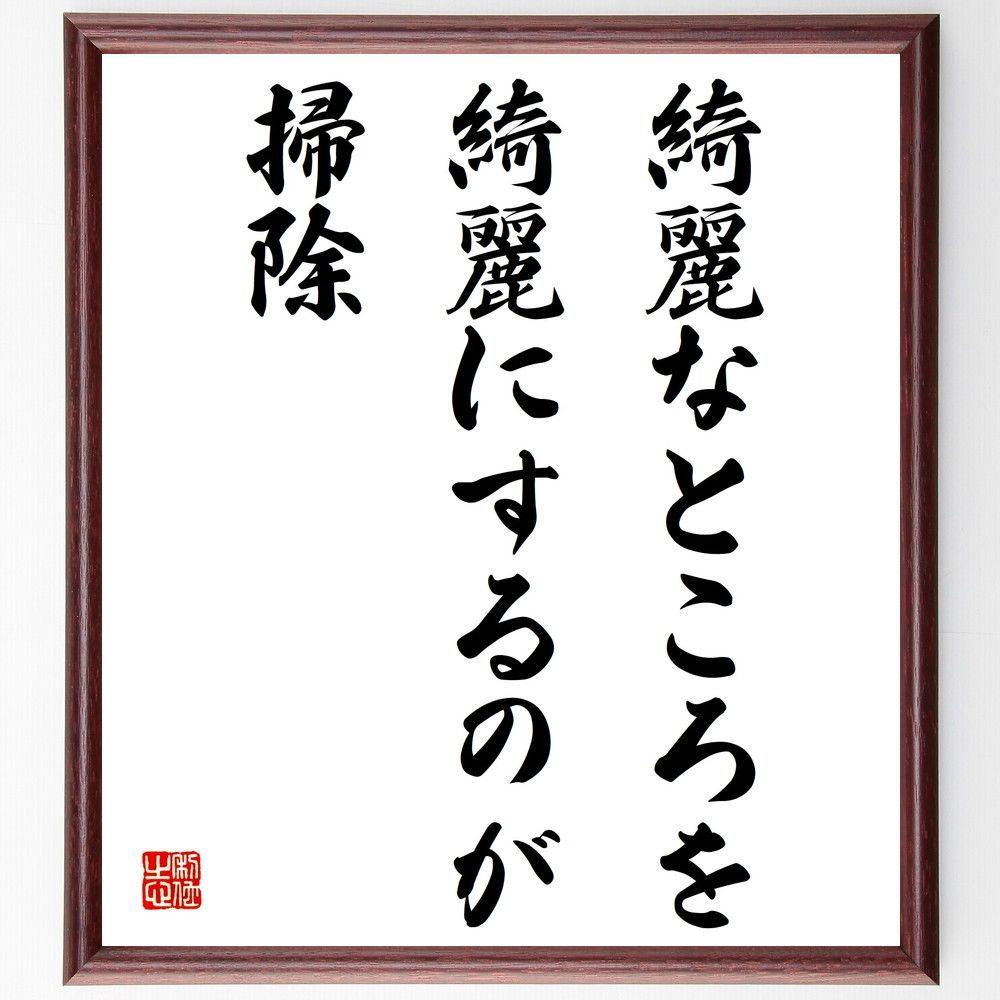 綺麗なところを
綺麗にするのが
掃除